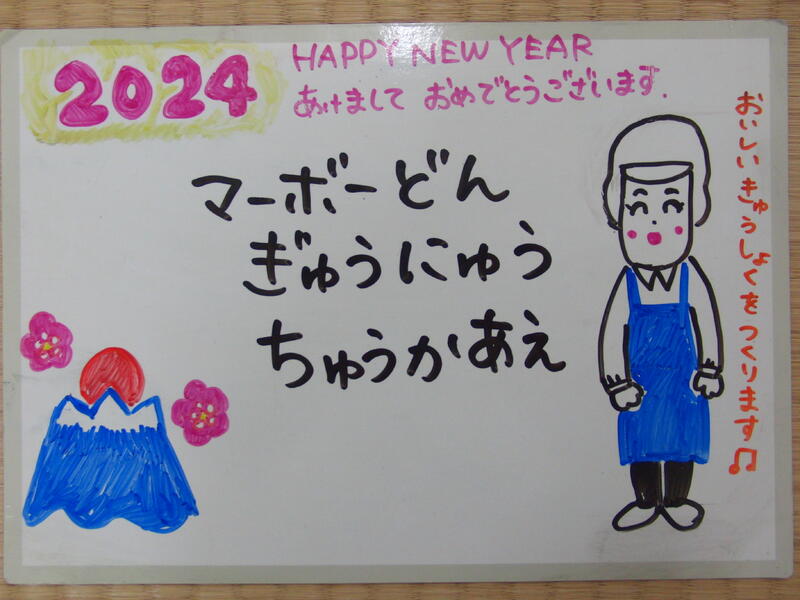 2024
HAPPY NEW YEAR
あけまして おめでとうございます.
マーボーどん
ぎゅうにゅう
ちゅうかあえ
おいしいきゅうしょくをつくります♫